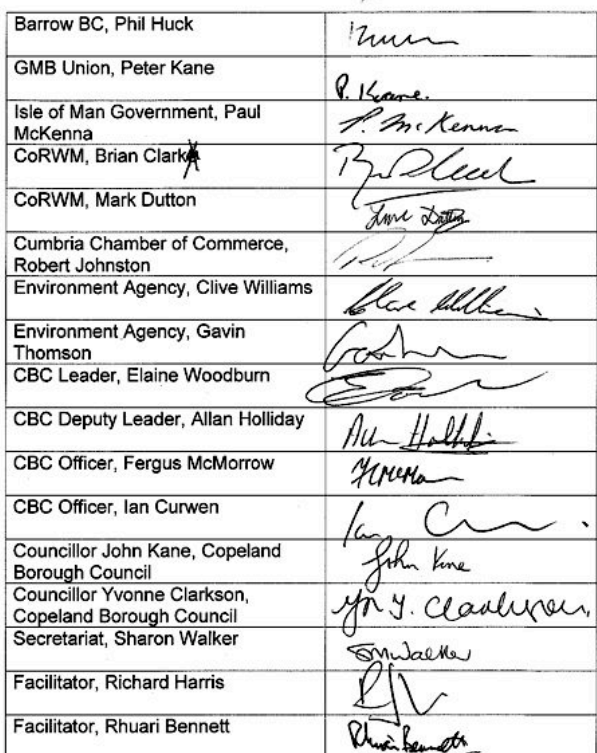 Barrow BC, Phil Huck
GMB Union, Peter Kane
P. Kane.
Isle of Man Government, Paul
McKenna
P. McKenna
CoRWM, Brian Clark
CoRWM, Mark Dutton
Dutton
Cumbria Chamber of Commerce,
Robert Johnston
Environment Agency, Clive Williams
Clive Williams
Environment Agency, Gavin
Thomson
CBC Leader, Elaine Woodburn
CBC Deputy Leader, Allan Holliday
CBC Officer, Fergus McMorrow
CBC Officer, Ian Curwen
Ian
Councillor John Kane, Copeland
Borough Council
John Kane
Councillor Yvonne Clarkson,
Copeland Borough Council
Y. Clarkson
Secretariat, Sharon Walker
SMWalker
Facilitator, Richard Harris
Facilitator, Rhuari Bennett
Rhuari Bennett